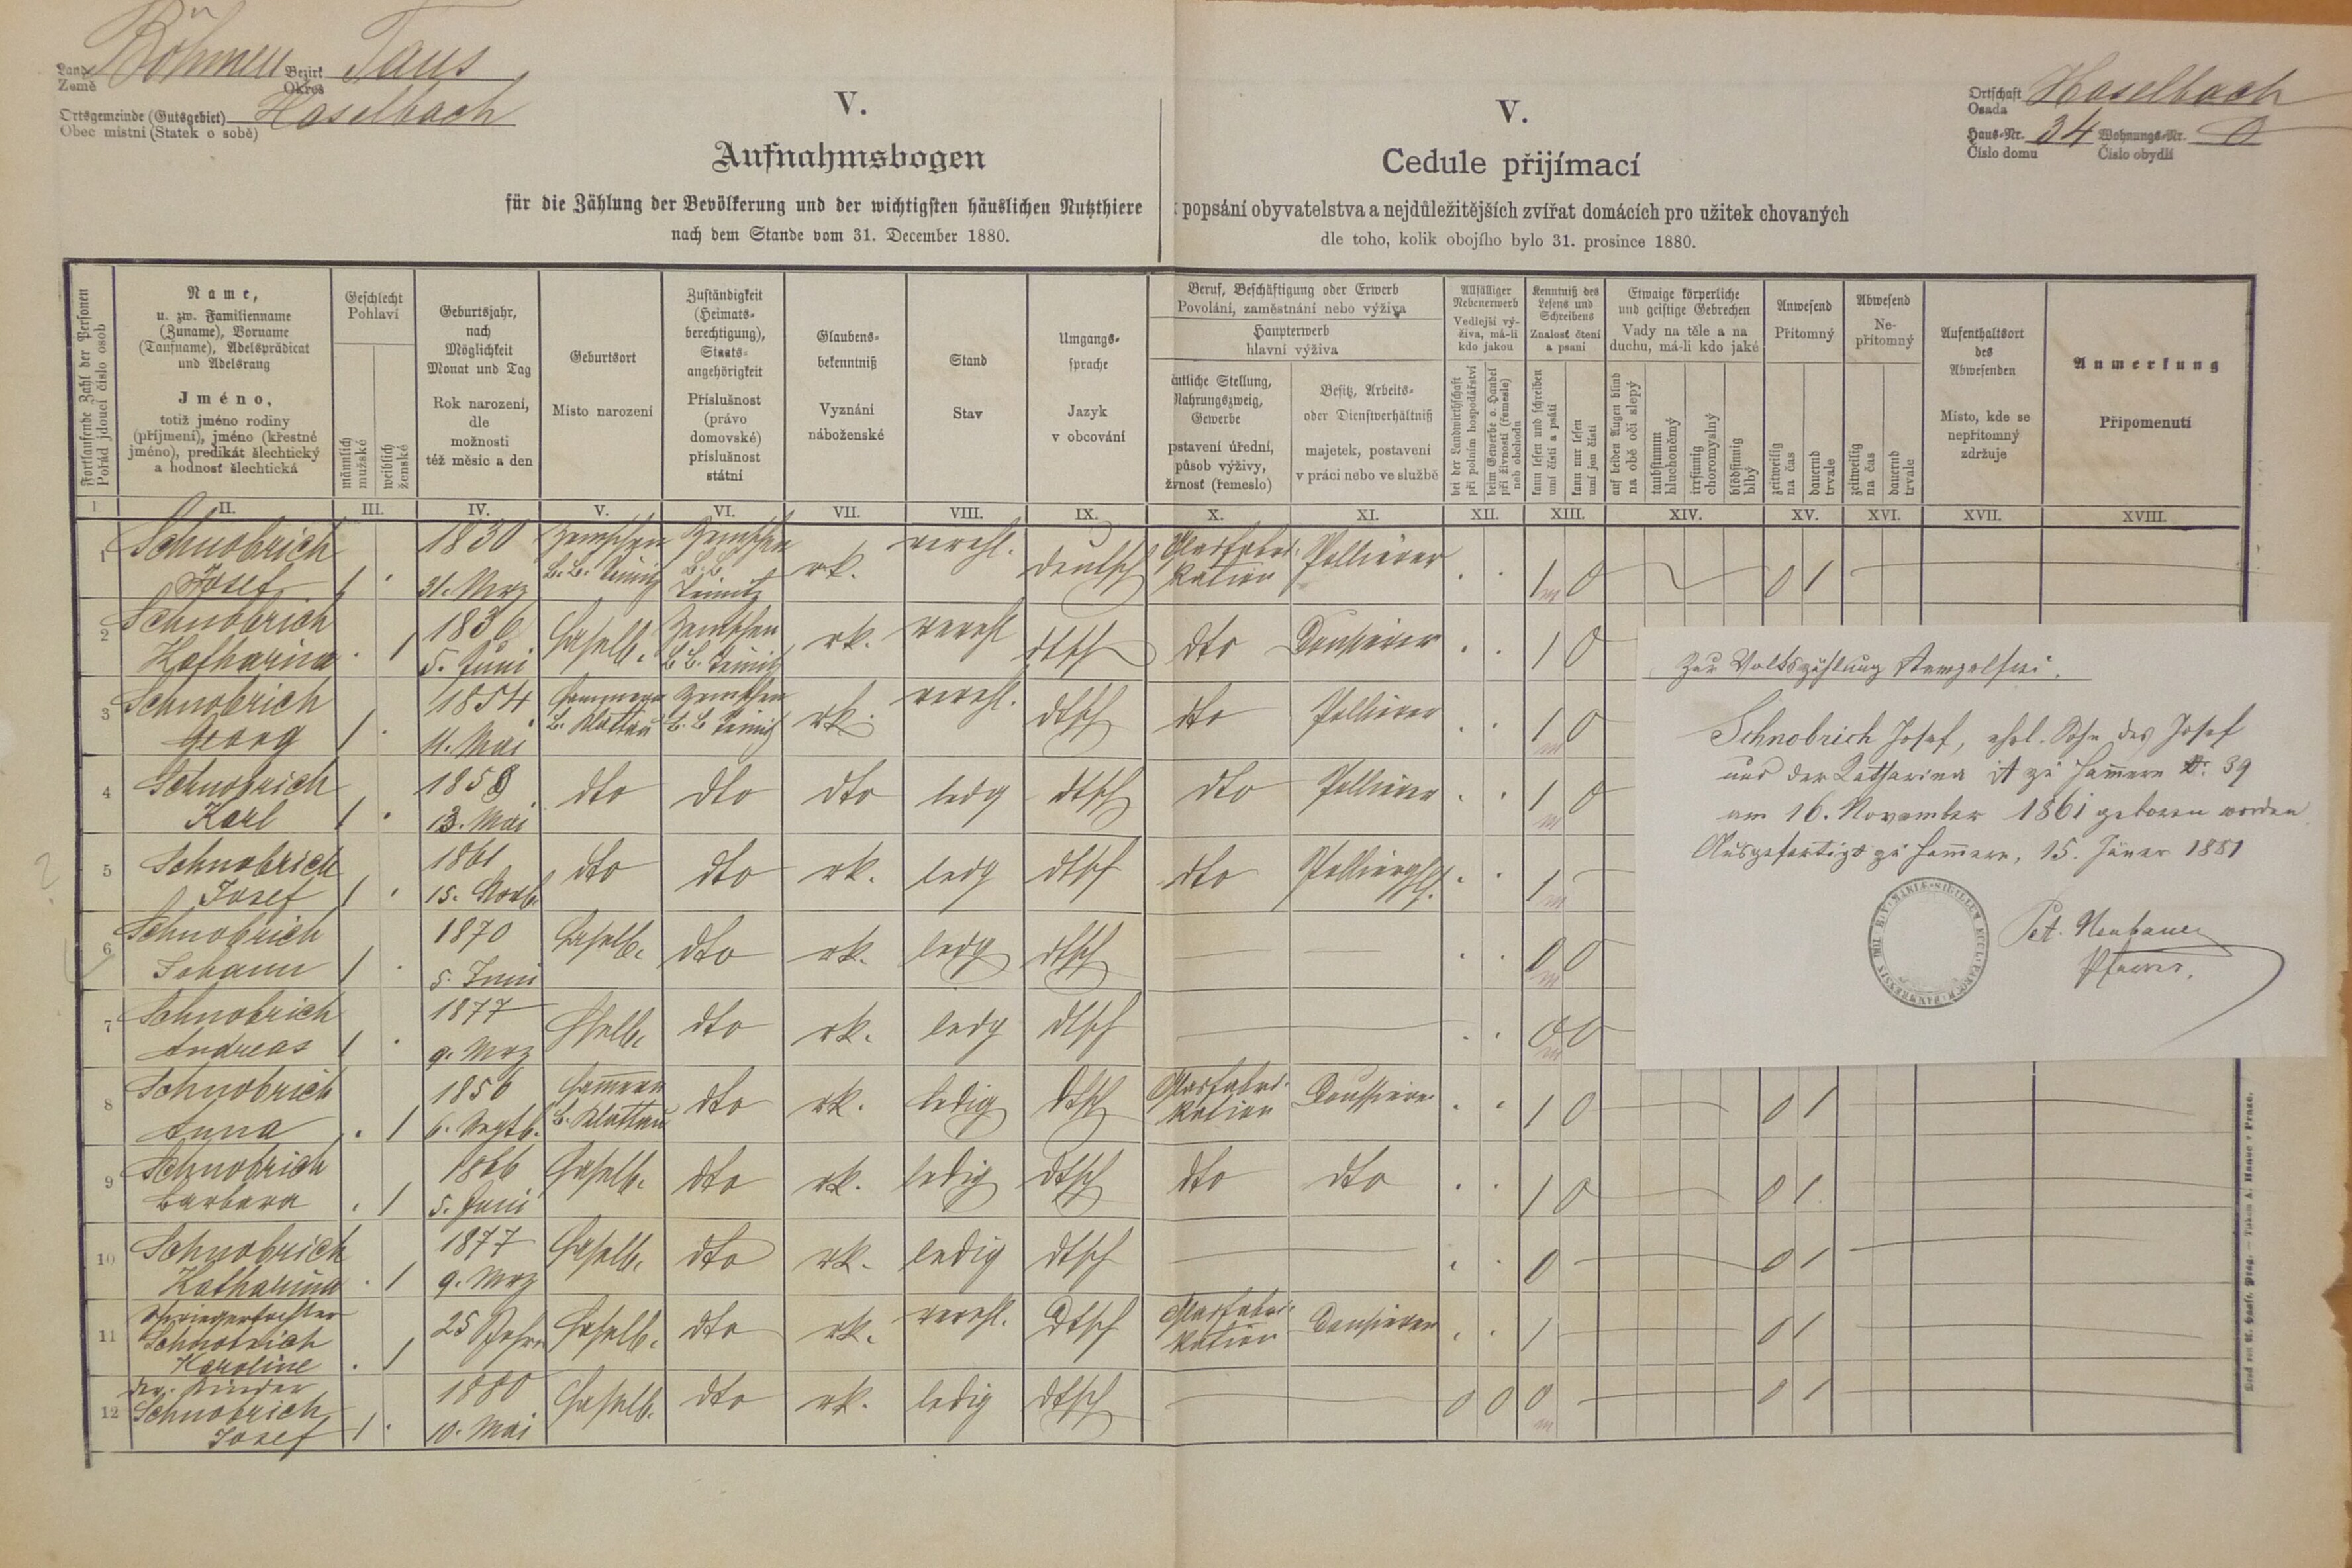 Land Böhmen Bezirk Taus
Země Okres
Ortsgemeinde (Gutsgebiet) Haselbach
Obec místní (Statek o sobě)
V.
Aufnahmsbogen
für die Zählung der Bevölkerung und der wichtigsten häuslichen Nutzthiere
nach dem Stande vom 31. December 1880.
V.
Cedule přijímací
popsání obyvatelstva a nejdůležitějších zvířat domácích pro užitek chovaných
dle toho, kolik obojího bylo 31. prosince 1880.
Ortschaft Haselbach
Osada
Haus-Nr. 34 Wohnungs-Nr. 0
Číslo domu Číslo obydlí
Fortlaufende Zahl der Personen
Pořád jdoucí číslo osob
Name,
u. zw. Familienname
(Zuname), Vorname
(Taufname), Adelsprädicat
und Adelsrang
Jméno,
totiž jméno rodiny
(příjmení), jméno (křestné
jméno), predikát šlechtický
a hodnosť šlechtická
Geschlecht
Pohlaví
männlich
mužské
weiblich
ženské
Geburtsjahr,
nach
Möglichkeit
Monat und Tag
Rok narození,
dle
možnosti
též měsíc a den
Geburtsort
Místo narození
Zuständigkeit
(Heimats-
berechtigung),
Staats-
angehörigkeit
Příslušnost
(právo
domovské)
příslušnost
státní
Glaubens-
bekenntniß
Vyznání
náboženské
Stand
Stav
Umgangs-
sprache
Jazyk
v obcování
Beruf, Beschäftigung oder Erwerb
Povolání, zaměstnání nebo výživa
Haupterwerb
hlavní výživa
mtliche Stellung,
Nahrungszweig,
Gewerbe
pstavení úřední,
působ výživy,
živnosť (řemeslo)
Besitz, Arbeits-
oder Dienstverhältniß
majetek, postavení
v práci nebo ve službě
Allfälliger
Nebenerwerb
Vedlejší vý-
živa, má-li
kdo jakou
bei der Landwirthschaft
při polním hospodářství
beim Gewerbe o. Handel
při živnosti (řemesle)
neb obchodu
Kenntniß des
Lesens und
Schreibens
Znalosť čtení
a psaní
kann lesen und schreiben
umí čísti a psáti
kann nur lesen
umí jen čísti
Etwaige körperliche
und geistige Gebrechen
Vady na těle a na
duchu, má-li kdo jaké
auf beiden Augen blind
na obě oči slepý
taubstumm
hluchoněmý
irrsinnig
choromyslný
blödsinnig
blbý
Anwesend
Přítomný
zeitweilig
na čas
dauernd
trvale
Abwesend
Ne-
přítomný
zeitweilig
na čas
dauernd
trvale
Aufenthaltsort
des
Abwesenden
Místo, kde se
nepřítomný
zdržuje
Anmerkung
Připomenutí
I II. III. IV. V. VI. VII. VIII. IX. X. XI. XII. XIII. XIV. XV. XVI. XVII. XVIII.
1 Schnobrich 1830 verehl. Glasfabri-
Josef 1 31. Mrz rk. deutsch kation Pollierer 1 0 0 1
2 Schnobrich 1836 verehl
Katharina 1 5. Juni Haselb. rk. dtsch dto 1 0
3 Schnobrich 1854 verehl.
Georg 1 4. Mai B. Klattau rk. dtsch dto Pollierer 1 0
4 Schnobrich 1858
Karl 1 13. Mai dto dto dto ledg dtsch dto Pollierer 1 0
5 Schnobrich 1861
Josef 1 15. Novb. dto dto rk. ledg dtsch dto 1
6 Schnobrich 1870
Johann 1 5. Juni Haselb. dto rk. ledg dtsch 0 0
7 Schnobrich 1877
Andreas 1 9. Mrz Haselb. dto rk. ledg dtsch 0 0
8 Schnobrich 1856 Hammern Glasfabri-
Anna 1 6. Septb. B. Klattau dto rk. ledig dtsch kation 1 0 0 1
9 Schnobrich 1866
Barbara 1 5. Juni Haselb. dto rk. ledig dtsch dto dto 1 0 0 1
10 Schnobrich 1877
Katharina 1 9. Mrz Haselb. dto rk. ledig dtsch 0 0 1
Schwiegertochter
11 Schnobrich 25 Jahre Haselb. dto rk. verehl. dtsch Glasfabri-
Karoline 1 kation 1 0 1
der. Kinder
12 Schnobrich 1880 Haselb. dto rk. ledig dtsch 0 0 0 0 1
Josef 1 10. Mai
Zur Volkszählung stempelfrei.
Schnobrich Josef, ehel. Sohn des Josef
und der Katharina ist zu Hammern Nr. 39
am 16. November 1861 geboren worden
Ausgefertigt zu Hammern, 15. Jäner 1881
Pet. Neubauer
Pfarrer.